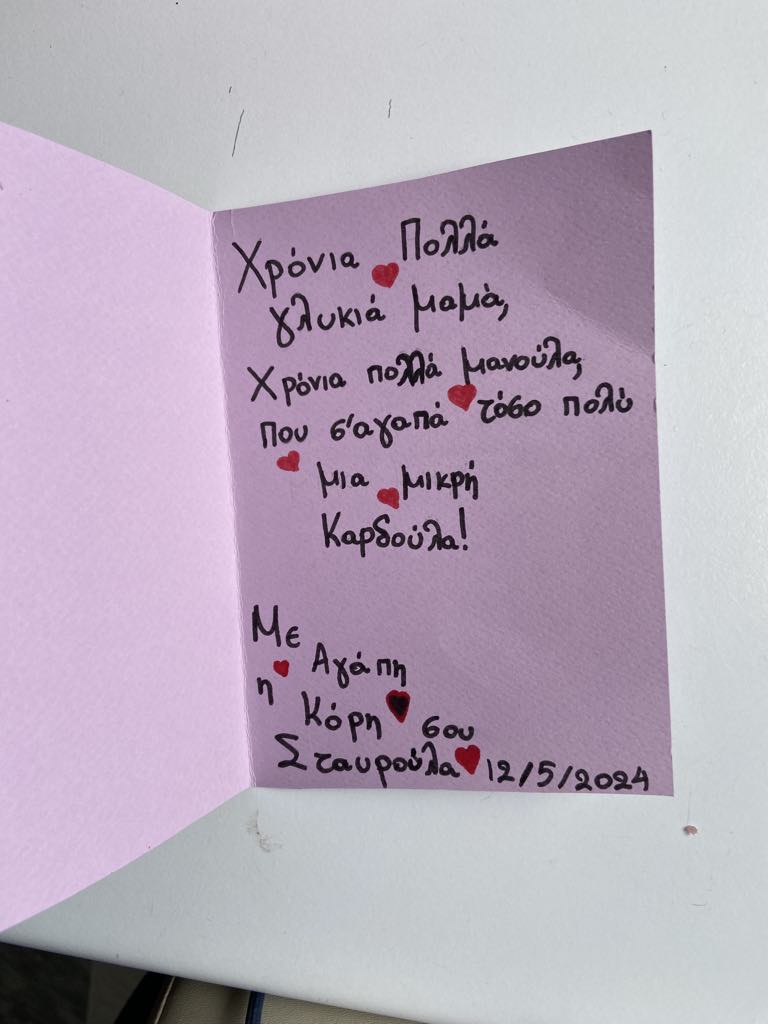 Χρόνια Πολλά
γλυκιά μαμά,
Χρόνια πολλά μανούλα,
που σ'αγαπά τόσο πολύ
μια μικρή
Καρδούλα!
Με
Αγάπη
η
Κόρη σου
Σταυρούλα 12/5/2024